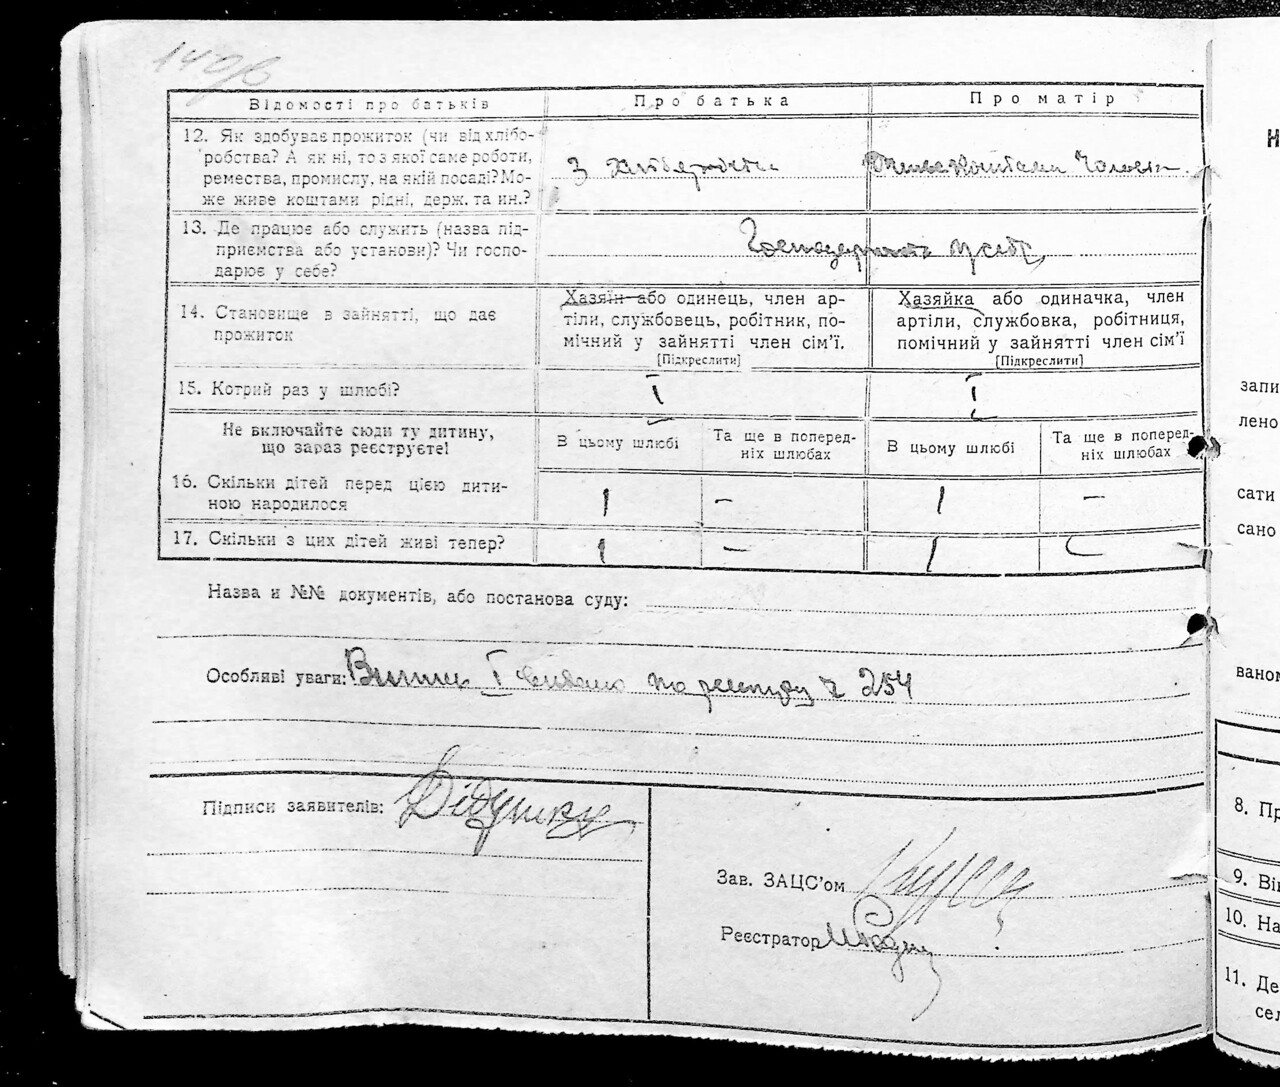 149/в
Відомості про батьків
Про батька
Про матір
12. Як здобуває прожиток (чи від хлібо-
робства? А як ні, то з якої саме роботи,
ремества, промислу, на якій посаді? Мо-
же живе коштами рідні, держ. та ин.?
З хліборобства
коштами чоловіка
13. Де працює або служить (назва під-
приємства або установи)? Чи госпо-
дарює у себе?
у себе
14. Становище в зайнятті, що дає
прожиток
Хазяїн або одинець, член ар-
тілі, службовець, робітник, по-
мічний у зайнятті член сім'ї.
[Підкреслити]
Хазяйка або одиначка, член
артіли, службовка, робітниця,
помічний у зайнятті член сім'ї
[Підкреслити]
15. Котрий раз у шлюбі?
I
I
Не включайте сюди ту дитину,
що зараз реєструєте!
В цьому шлюбі
Та ще в поперед-
ніх шлюбах
В цьому шлюбі
Та ще в поперед-
ніх шлюбах
16. Скільки дітей перед цією дити-
ною народилося
1
–
1
–
17. Скільки з цих дітей живі тепер?
1
–
1
–
Назва и №№ документів, або постанова суду:
Особливі уваги: I видано по реєстру 254
Підписи заявителів:
Зав. ЗАЦС'ом
Реєстратор
Н
запи
лено
сати
сано
ваном
8. Пр
9. Він
10. На
11. Де
сел